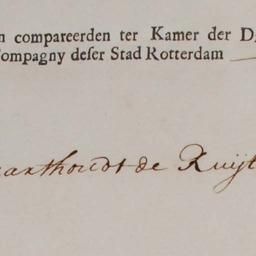 n compareerden ter Kamer der D
Compagny deser Stad Rotterdam
aarthoudt de Ruijt